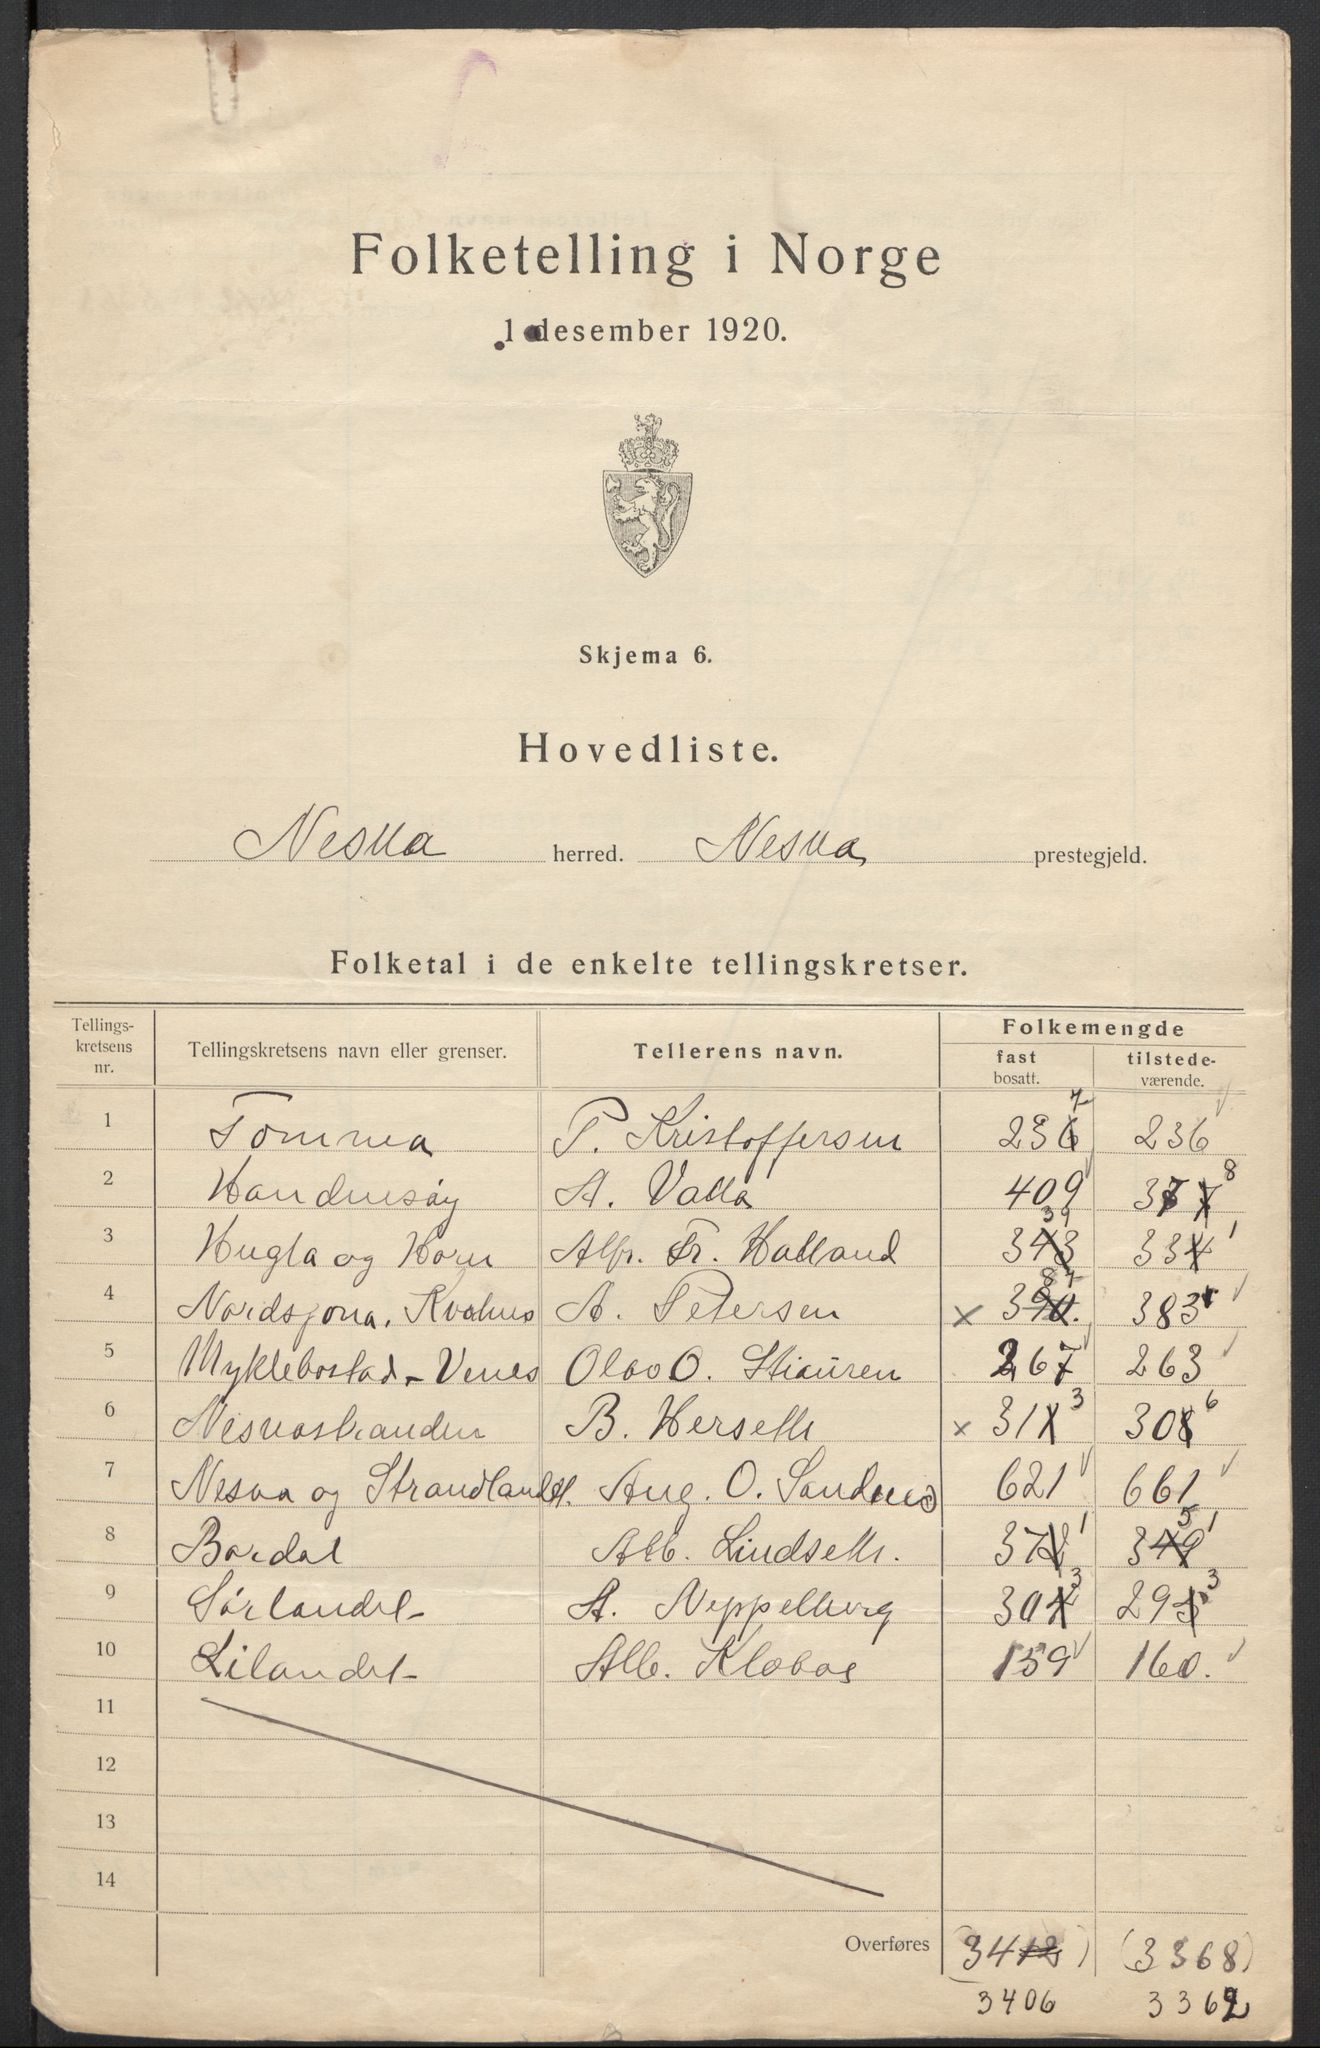 Folketelling i Norge
1 desember 1920.
Skjema 6.
Hovedliste.
Nesna herred. Nesna prestegjeld.
Folketal i de enkelte tellingskretser.
Tellings-kretsens nr. Tellingskretsens navn eller grenser. Tellerens navn. Folkemengde
fast bosatt. tilstede-værende.
1 Tomma P. Kristoffersen 236 7 236
2 Handnesøy A. Valla 409 377 8
3 Hugla og Horn Alfr. Fr. Halland 343 39 334 1
4 Nordsjona, Kvalnes A. Petersen x 390. 87 383
5 Myklebostad - Venes Olav O. 267 263
6 Nesnastranden B. Herseth x 311 3 308 6
7 Nesna og Strandland Aug. O. Sandnes 621 661
8 Bardal Alb. Lindseth. 372 1 349 51
9 Sørlandet A. Neppelberg 301 3 295 3
10 Lilandet Alb. Klobas 159 160.
11
12
13
14
Overføres (3412) (3368)
3406 3362